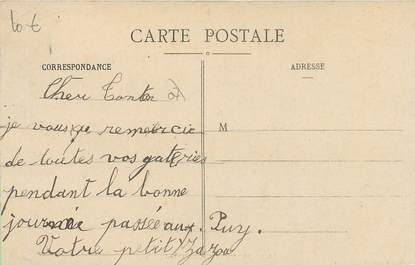 Lot
CARTE POSTALE
CORRESPONDANCE
ADRESSE
Cher Tonton
je vous remercie
M
de toutes vos gateries
pendant la bonne
journée passée aux. Puy.
Votre petit Zazou